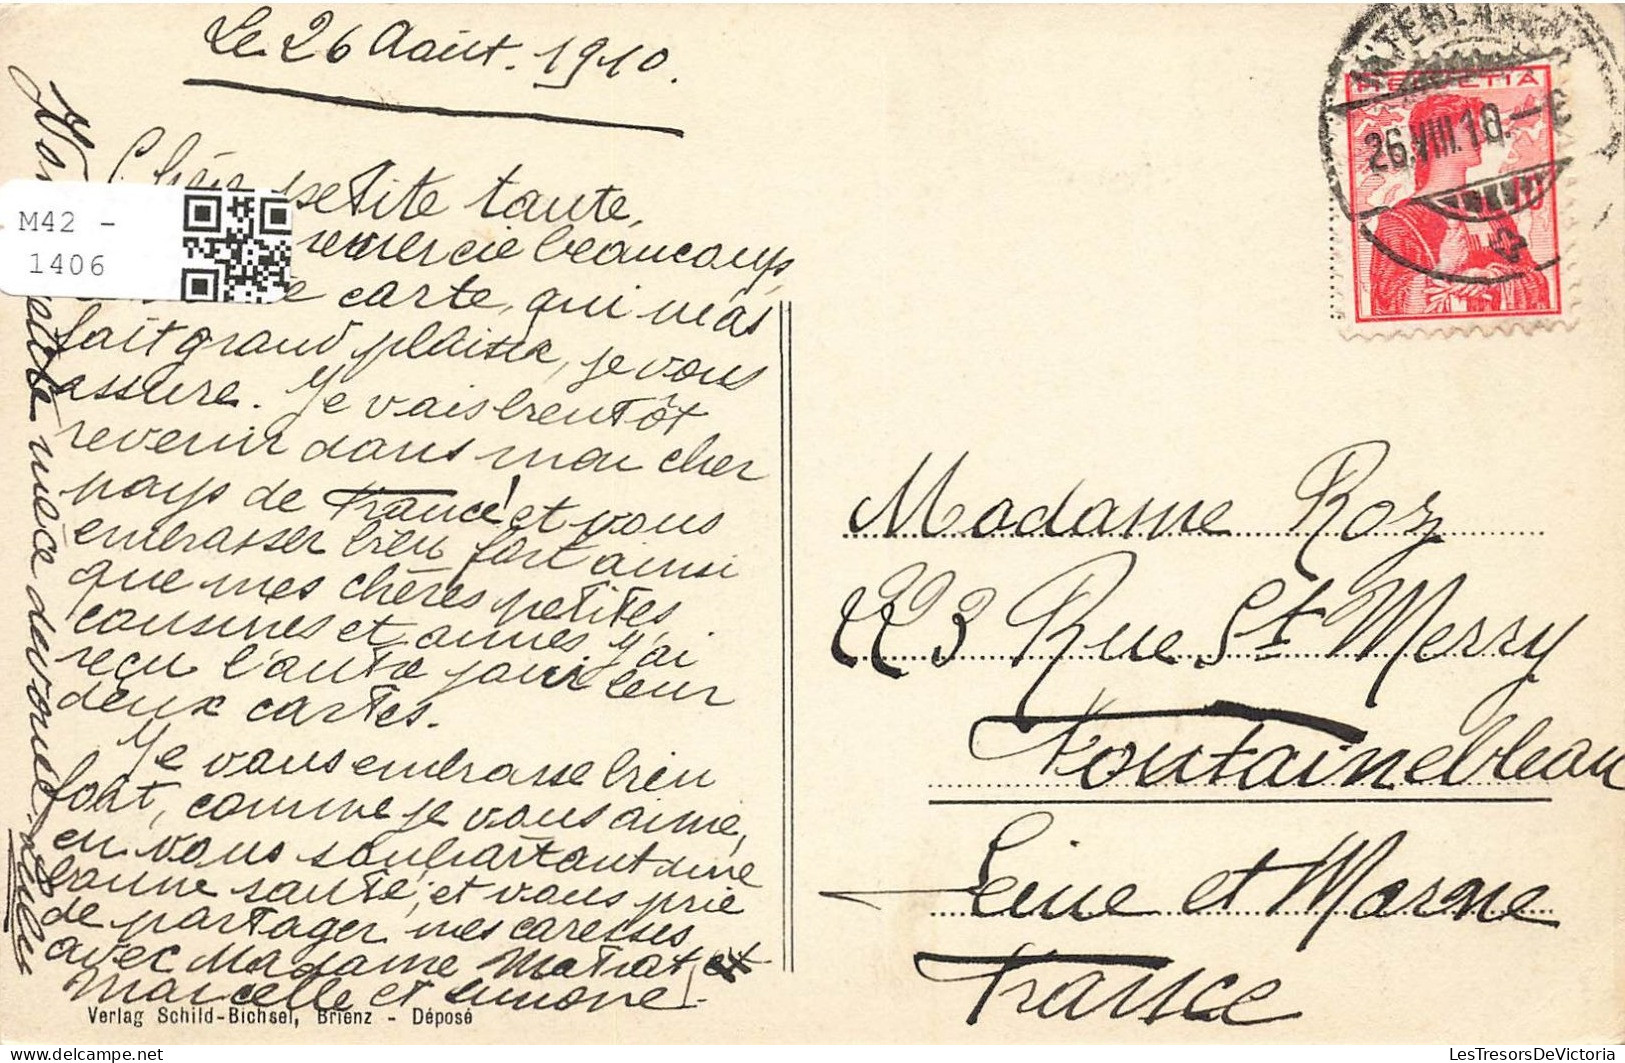 Le 26 Août. 1910.
Chère petite tante,
remercie beaucoup
carte, qui m'as
fait grand plaisir, je vous
assure. Je vais bientôt
revenir dans mon cher
pays de France! et vous
embrasser bien fort ainsi
que mes chères petites
cousines et amies, j'ai
reçu l'autre jour leur
deux cartes.
Je vous embrasse bien
fort, comme je vous aime,
en vous souhaitant une
bonne santé, et vous prie
de partager mes caresses
avec Madame Matrat, et
Marcelle et Simone.
Votre nièce dévouée.
M42 -
1406
HELVETIA
10
INTERLAKEN
26.VIII.10.-6
Madame Roz
223 Rue St Merry
Fontainebleau
Seine et Marne
France
Verlag Schild-Bichsel, Brienz - Déposé
LesTresorsDeVictoria